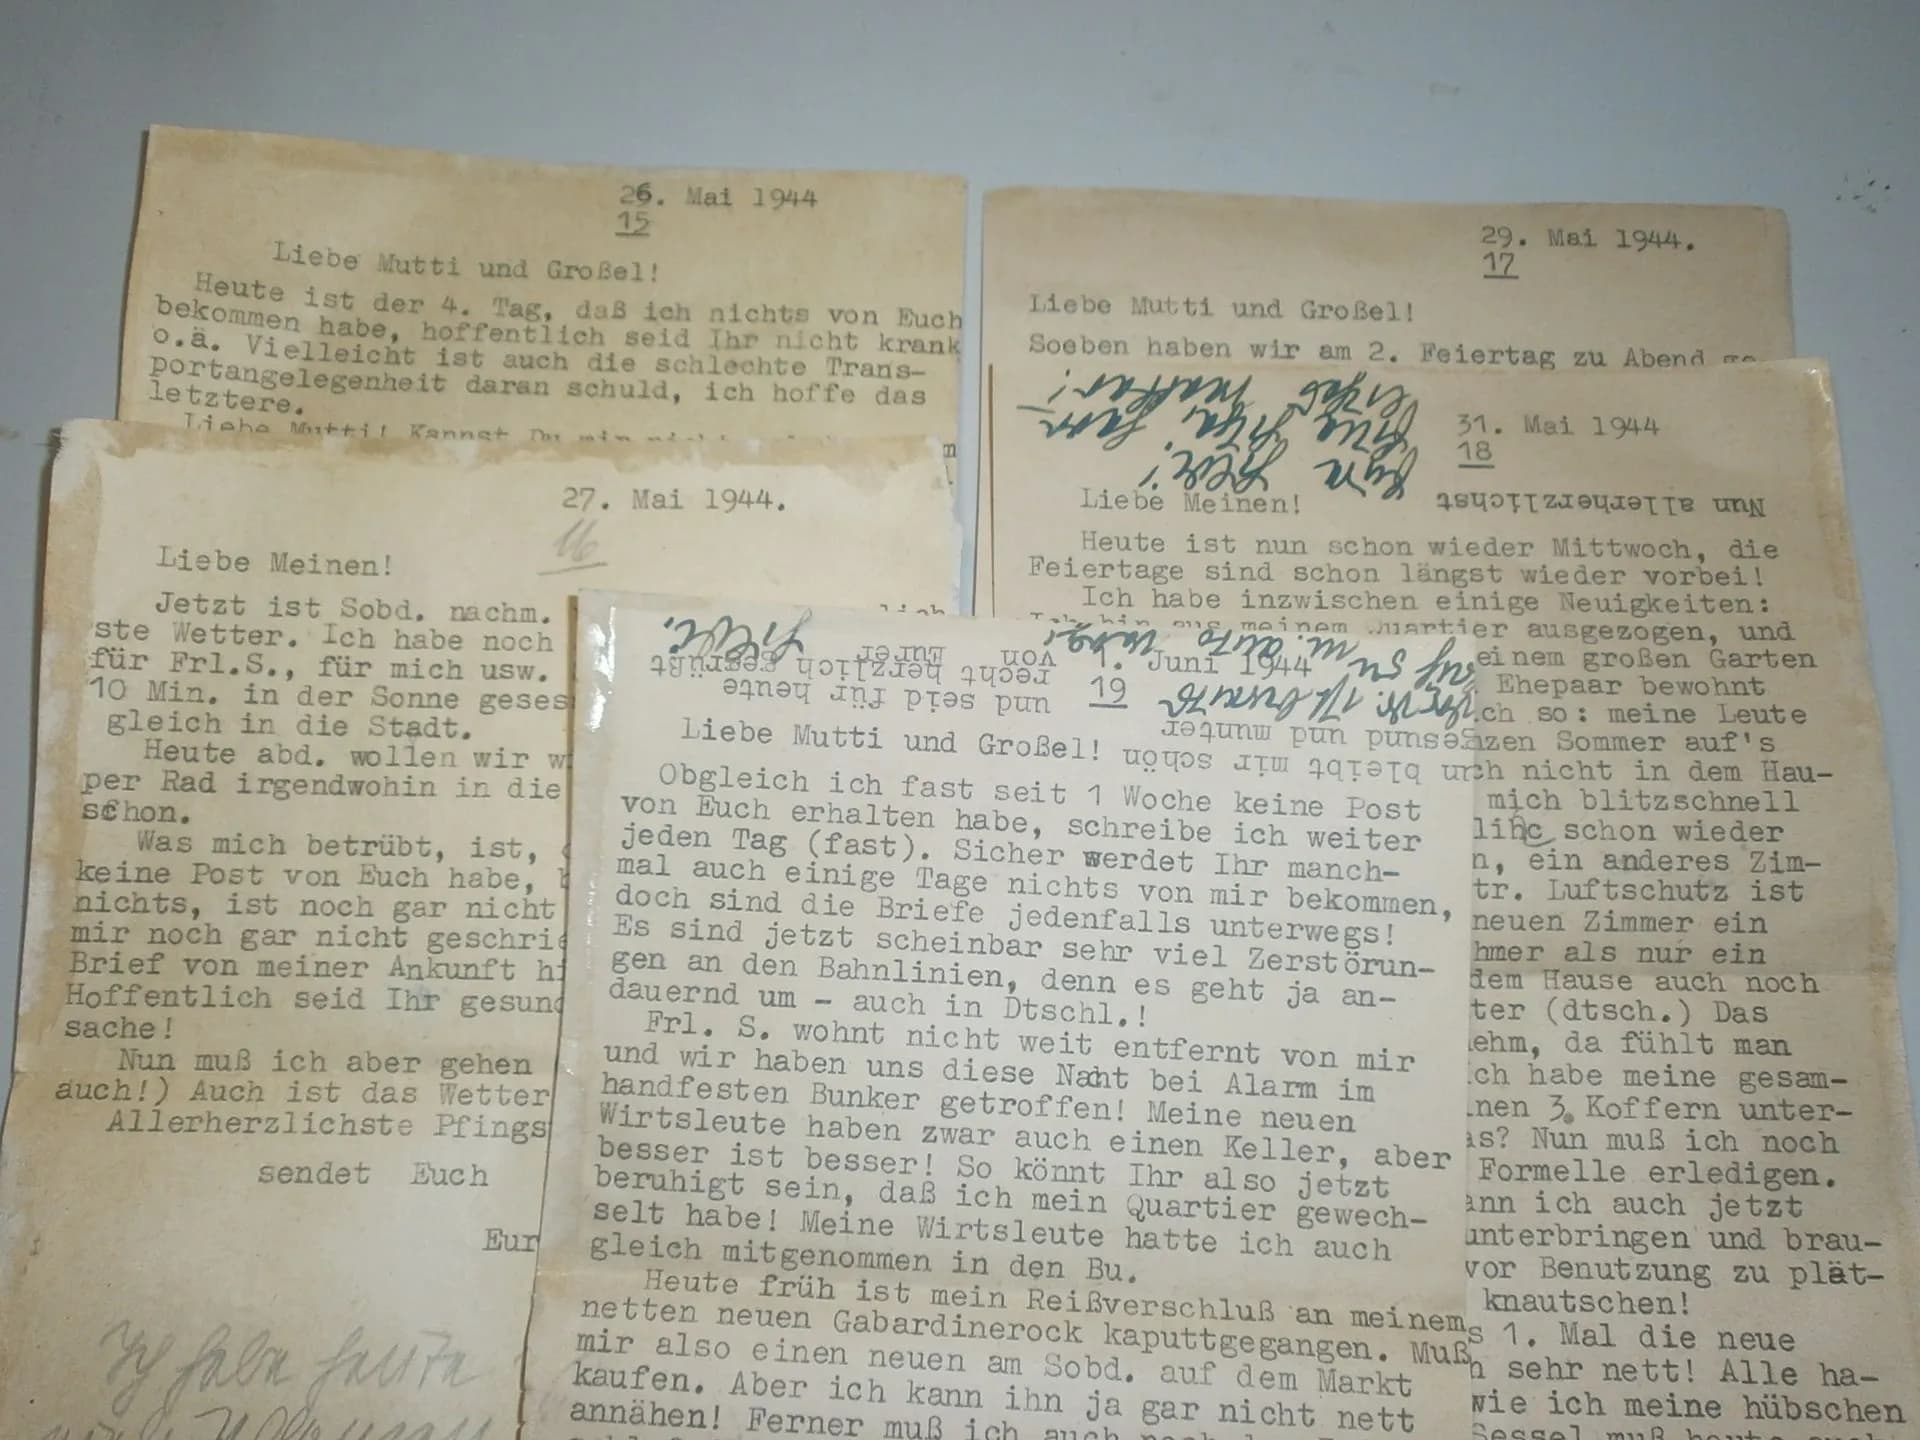 26. Mai 1944
15
Liebe Mutti und Großel!
Heute ist der 4. Tag, daß ich nichts von Euch
bekommen habe, hoffentlich seid Ihr nicht krank
o.ä. Vielleicht ist auch die schlechte Trans-
portangelegenheit daran schuld, ich hoffe das
letztere.
Liebe Mutti! Kannst Du mir
27. Mai 1944.
16
Liebe Meinen!
Jetzt ist Sobd. nachm.
ste Wetter. Ich habe noch
für Frl.S., für mich usw.
10 Min. in der Sonne geses
gleich in die Stadt.
Heute abd. wollen wir w
per Rad irgendwohin in die
schon.
Was mich betrübt, ist,
keine Post von Euch habe,
nichts, ist noch gar nicht
mir noch gar nicht geschrie
Brief von meiner Ankunft hi
Hoffentlich seid Ihr gesund
sache!
Nun muß ich aber gehen
auch!) Auch ist das Wetter
Allerherzlichste Pfings
sendet Euch
Eur
Ich habe heute
29. Mai 1944.
17
Liebe Mutti und Großel!
Soeben haben wir am 2. Feiertag zu Abend ge
31. Mai 1944
18
Liebe Meinen!
Nun allerherzlichst
Heute ist nun schon wieder Mittwoch, die
Feiertage sind schon längst wieder vorbei!
Ich habe inzwischen einige Neuigkeiten:
Ich bin aus meinem Quartier ausgezogen, und
einem großen Garten
Ehepaar bewohnt
ch so: meine Leute
nzen Sommer auf's
ch nicht in dem Hau-
mich blitzschnell
schon wieder
n, ein anderes Zim-
tr. Luftschutz ist
neuen Zimmer ein
hmer als nur ein
dem Hause auch noch
ter (dtsch.) Das
ehm, da fühlt man
ch habe meine gesam-
nen 3. Koffern unter-
as? Nun muß ich noch
Formelle erledigen.
ann ich auch jetzt
unterbringen und brau-
vor Benutzung zu plät-
knautschen!
s 1. Mal die neue
h sehr nett! Alle ha-
wie ich meine hübschen
Sessel muß heute
1. Juni 1944
19
Liebe Mutti und Großel!
Obgleich ich fast seit 1 Woche keine Post
von Euch erhalten habe, schreibe ich weiter
jeden Tag (fast). Sicher werdet Ihr manch-
mal auch einige Tage nichts von mir bekommen,
doch sind die Briefe jedenfalls unterwegs!
Es sind jetzt scheinbar sehr viel Zerstörun-
gen an den Bahnlinien, denn es geht ja an-
dauernd um - auch in Dtschl.!
Frl. S. wohnt nicht weit entfernt von mir
und wir haben uns diese Nacht bei Alarm im
handfesten Bunker getroffen! Meine neuen
Wirtsleute haben zwar auch einen Keller, aber
besser ist besser! So könnt Ihr also jetzt
beruhigt sein, daß ich mein Quartier gewech-
selt habe! Meine Wirtsleute hatte ich auch
gleich mitgenommen in den Bu.
Heute früh ist mein Reißverschluß an meinem
netten neuen Gabardinerock kaputtgegangen. Muß
mir also einen neuen am Sobd. auf dem Markt
kaufen. Aber ich kann ihn ja gar nicht nett
annähen! Ferner muß ich auch noch
un bleibt mir schön
gesund und munter
und seid für heute
recht herzlich gegrüßt
von Eurer